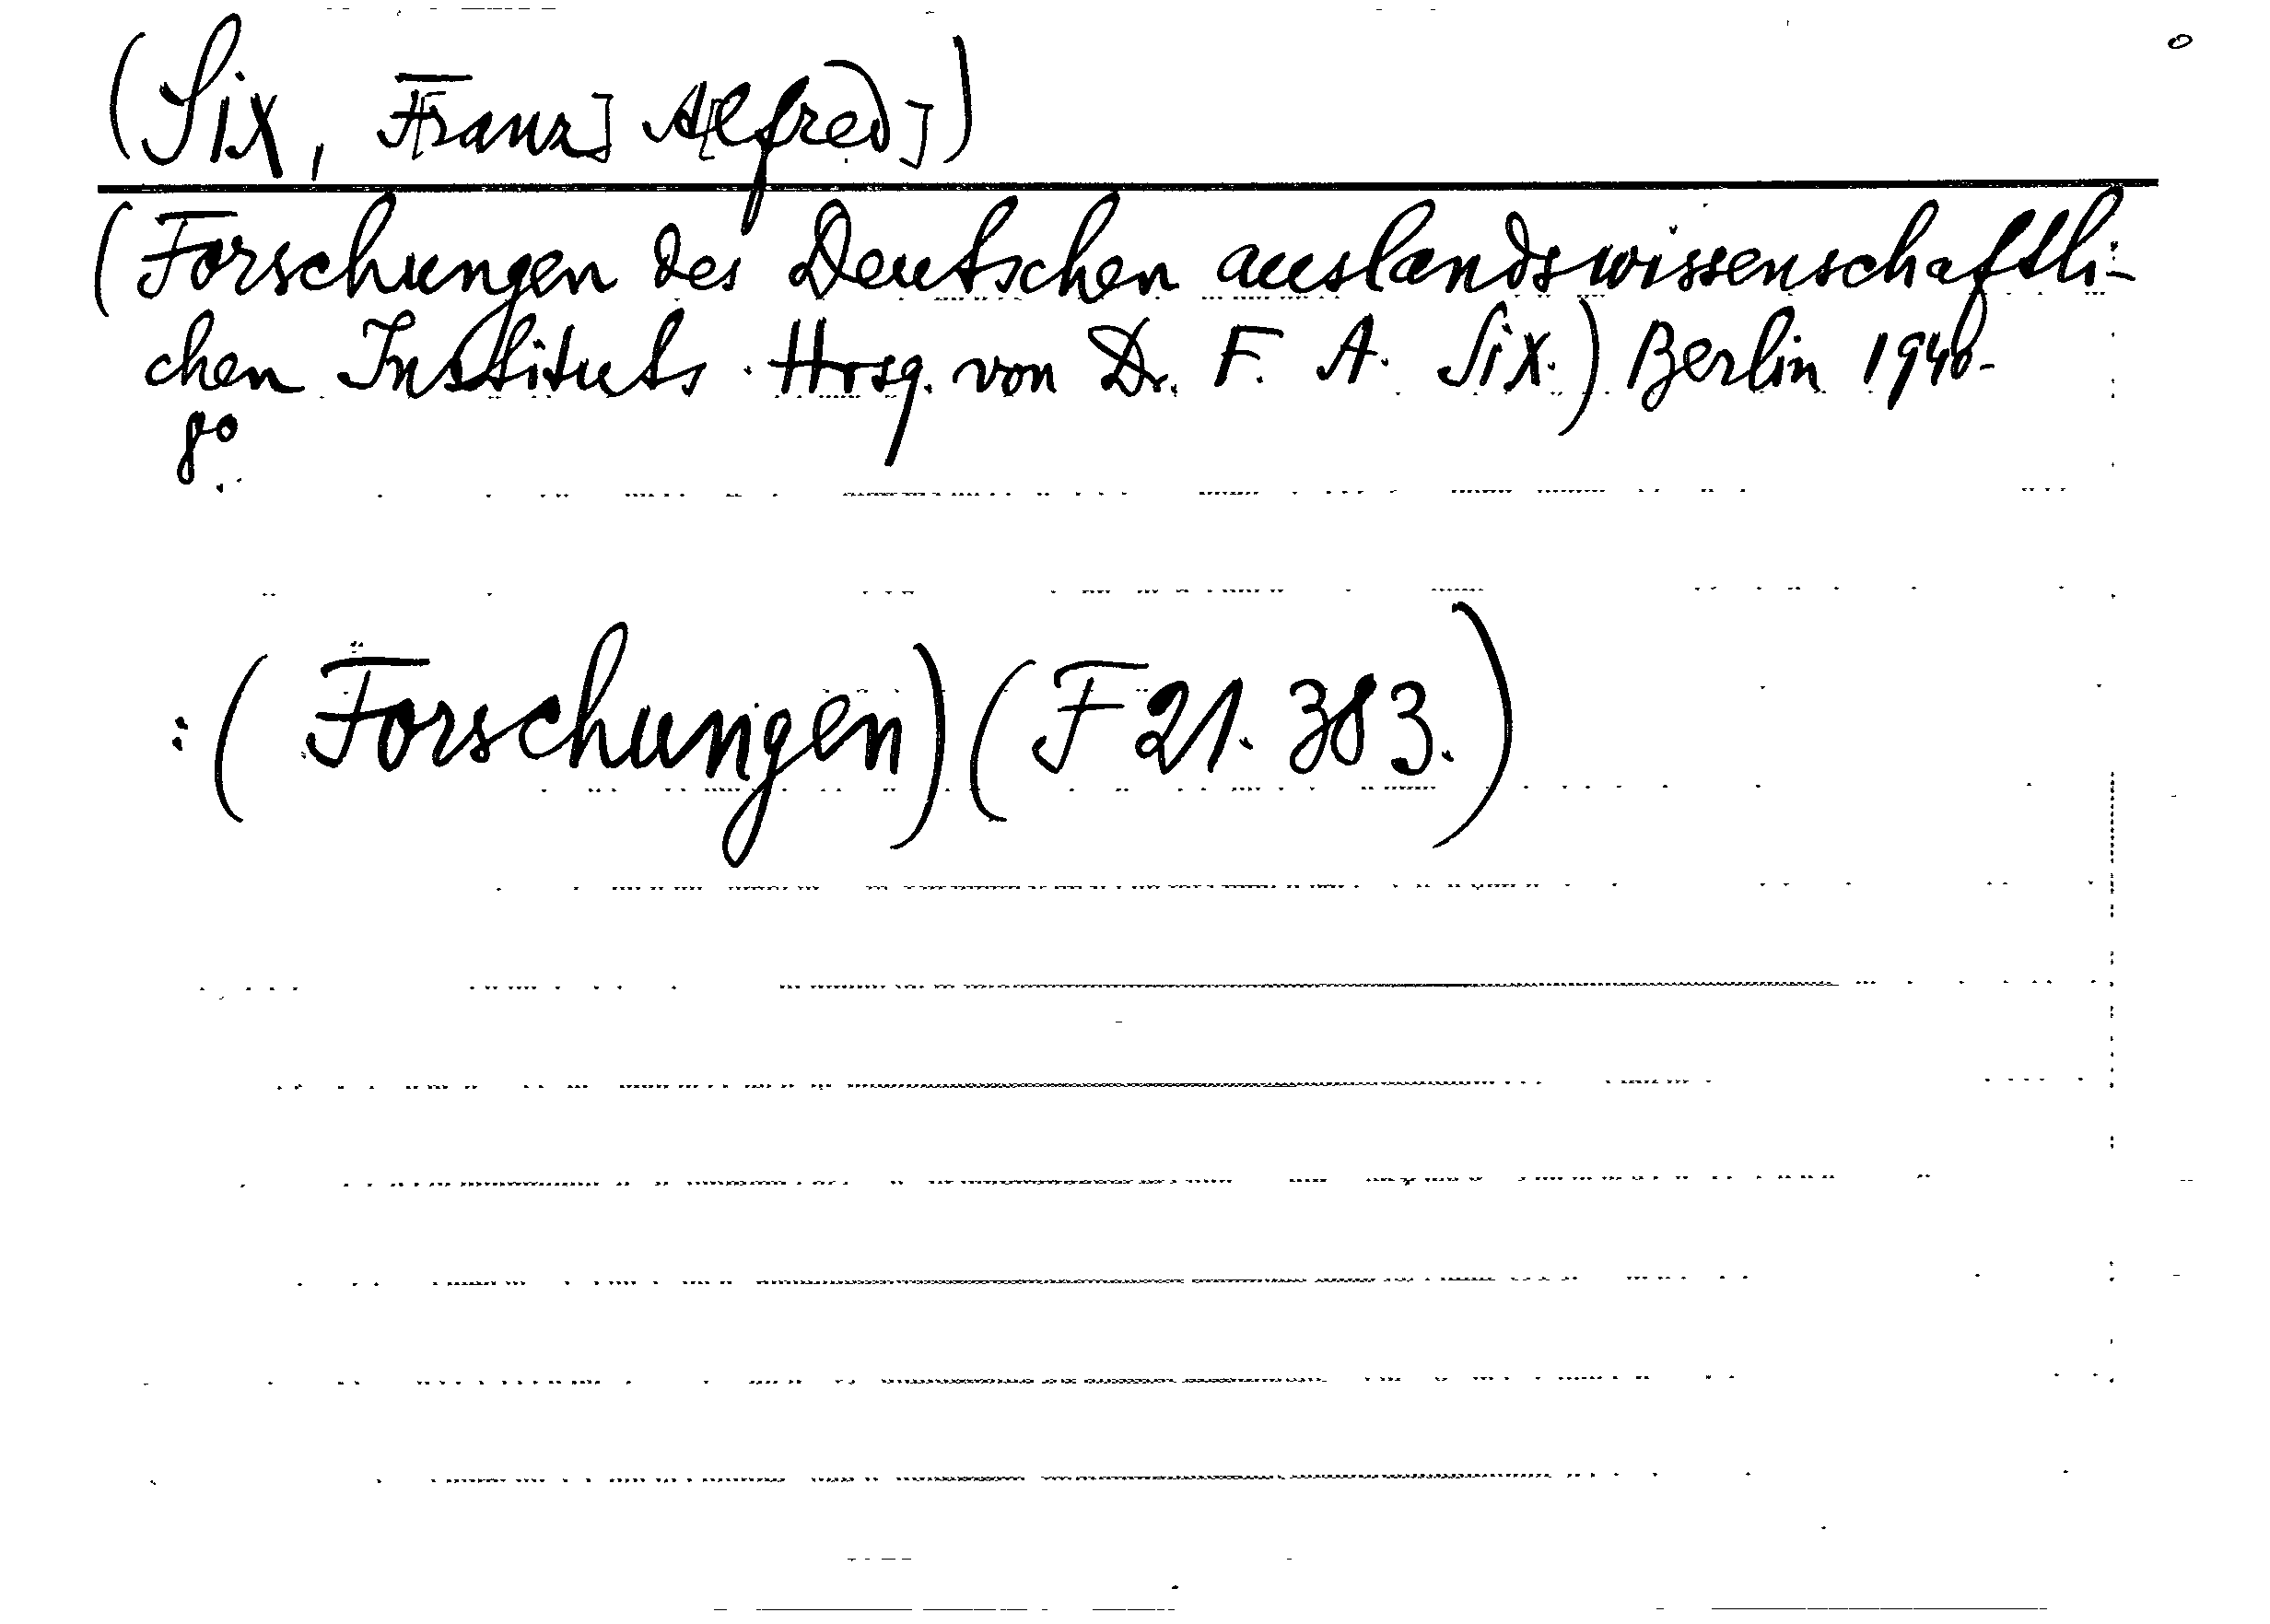 (Six, F[ranz] A[lfred])
(Forschungen des Deutschen auslandswissenschaftli-
chen Instituts. Hrsg. von Dr. F. A. Six.) Berlin 1940-
8°
:(Forschungen) (F 21. 383.)